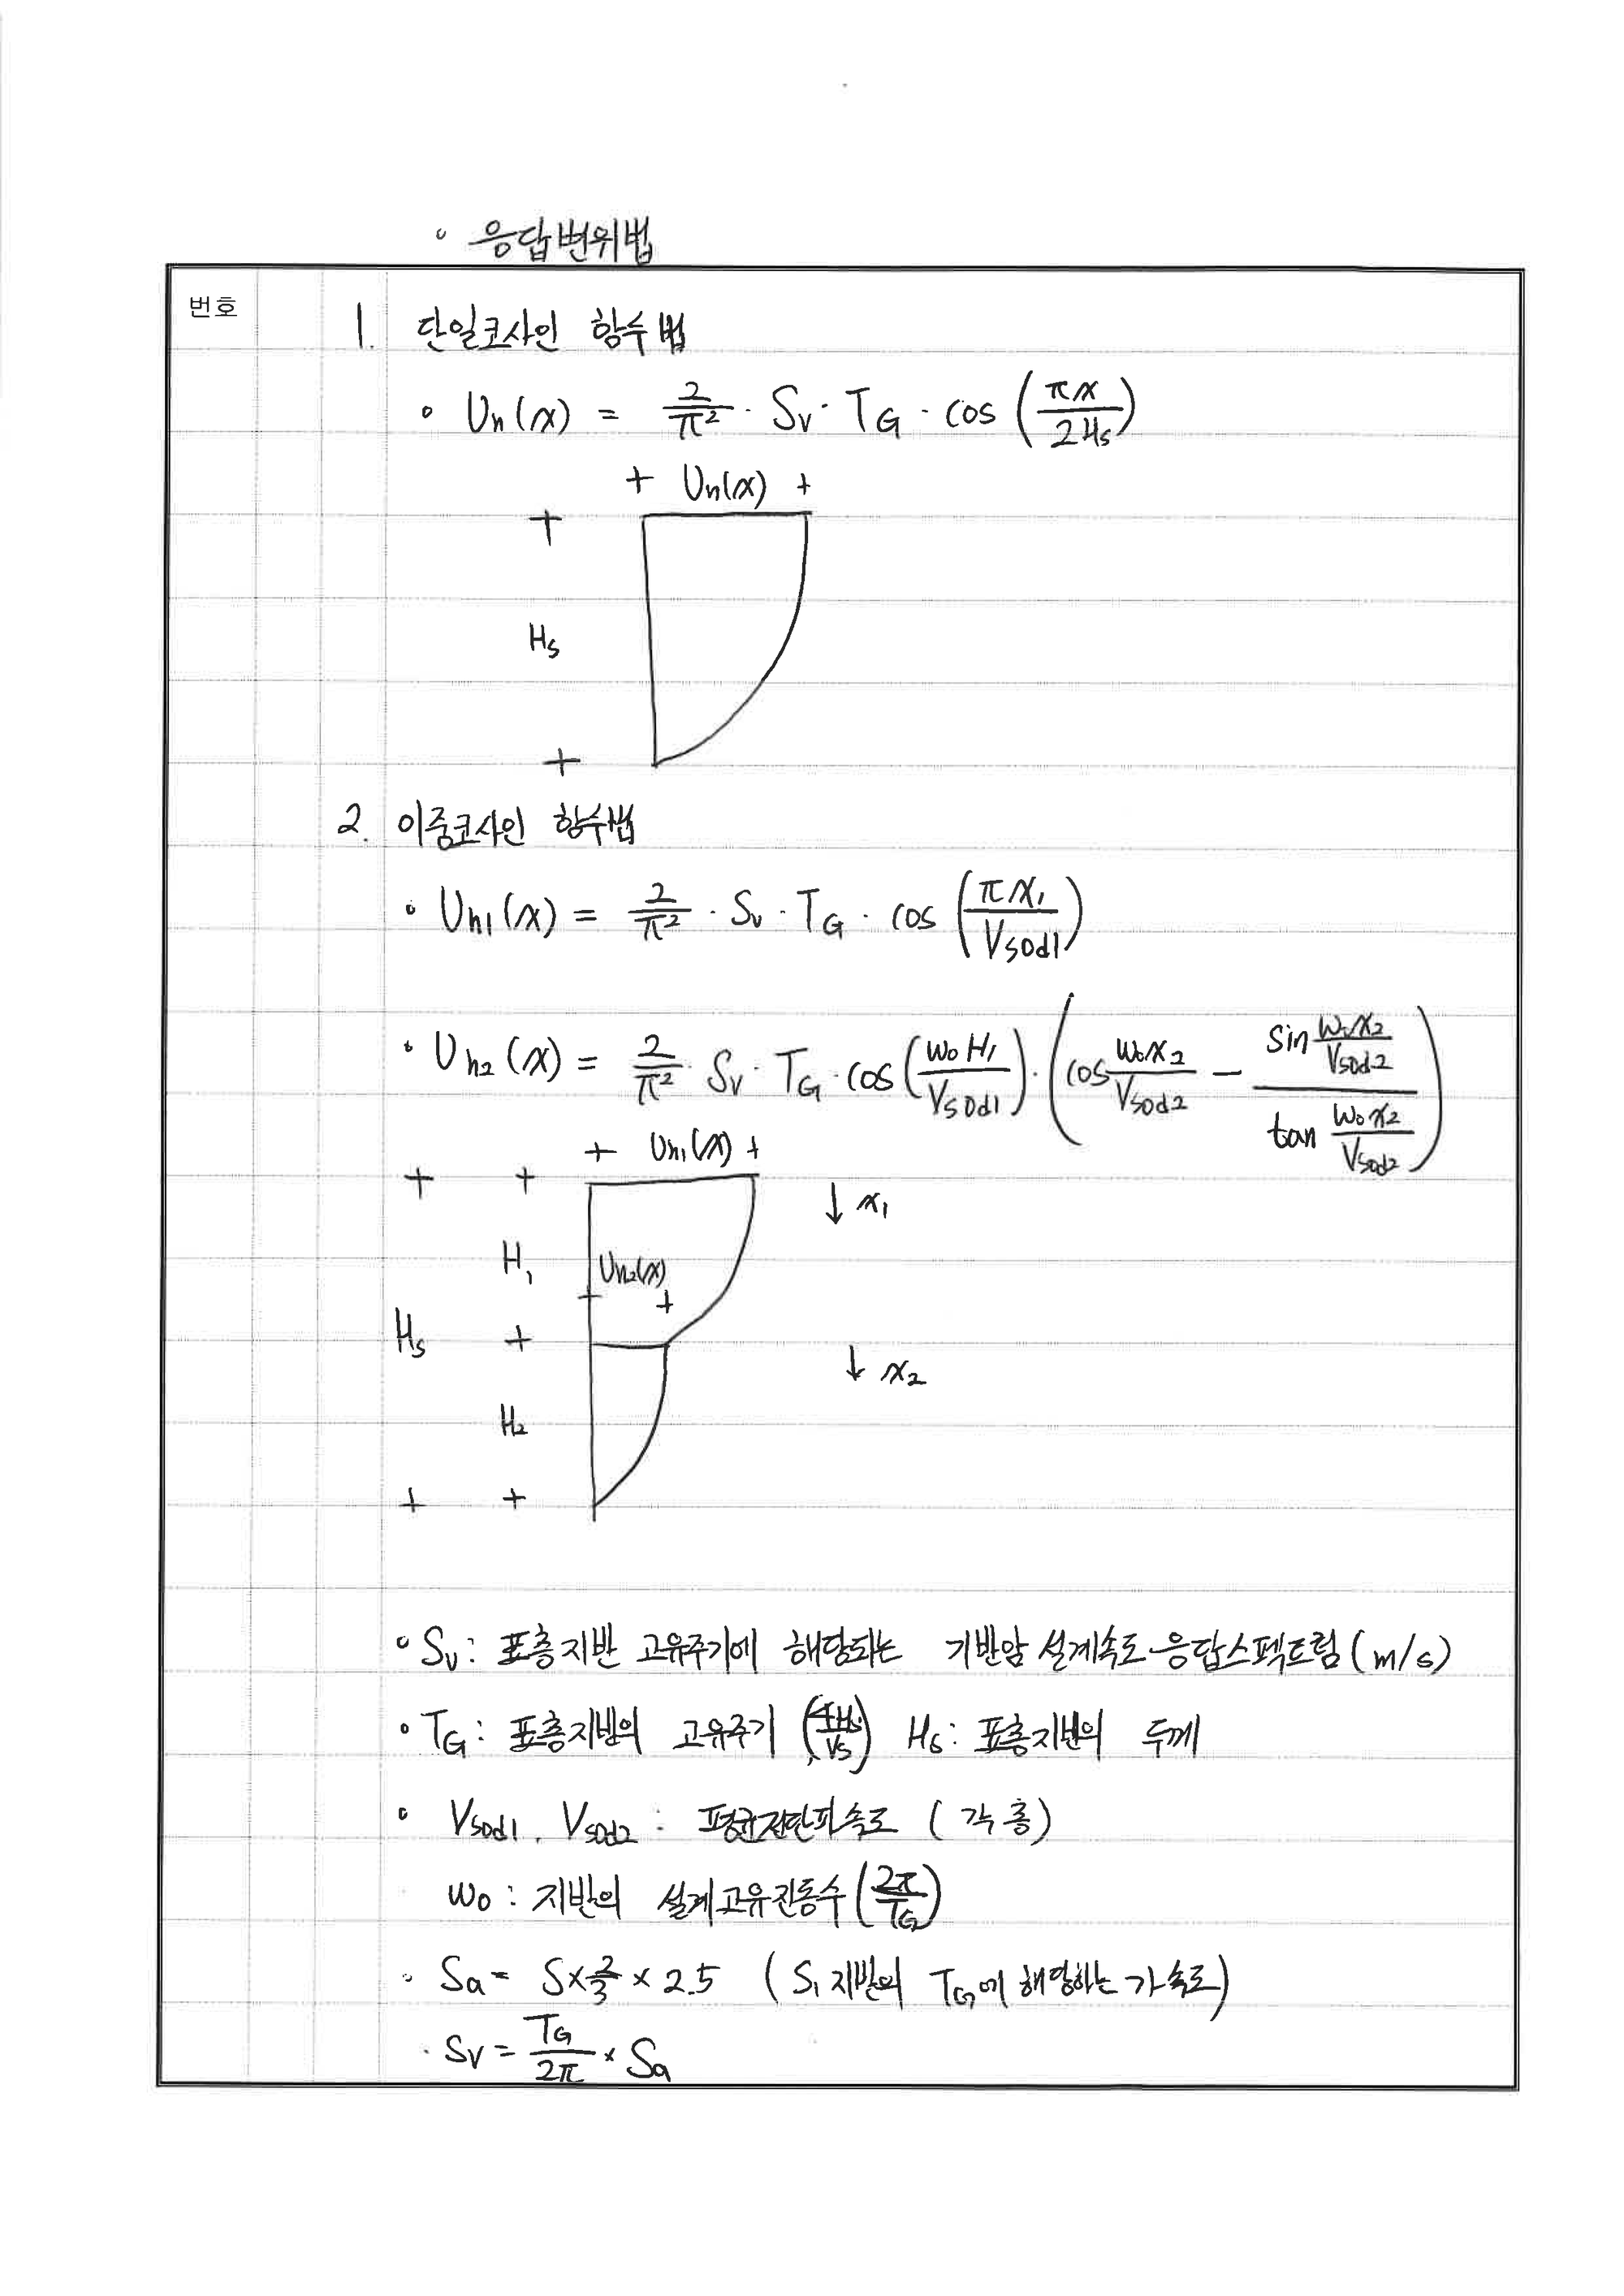 ◦ 응답변위법
번호
1. 단일코사인 함수법
◦ Un(x) = 2/π² · Sv · TG · cos(πx/2Hs)
+ Un(x) +
+
Hs
+
2. 이중코사인 함수법
◦ Un1(x) = 2/π² · Sv · TG · cos(πx1/Vsod1)
◦ Uh2(x) = 2/π² · Sv · TG · cos(woH1/Vsod1) · (cos wox2/Vsod2 − (sin wox2/Vsod2)/(tan wox2/Vsod2))
+ Un1(x) +
+ + ↓ x1
H1 Un2(x)
+ +
Hs + ↓ x2
H2
+ +
◦ Sv : 표층지반 고유주기에 해당되는 기반암 설계속도 응답스펙트럼 (m/s)
◦ TG : 표층지반의 고유주기 (4Hs/Vs) Hs : 표층지반의 두께
◦ Vsod1, Vsod2 : 평균전단파속도 (각 층)
wo : 지반의 설계고유진동수 (2π/TG)
◦ Sa = S × 2/3 × 2.5 (S1 지반의 TG에 해당하는 가속도)
· Sv = TG/2π × Sa